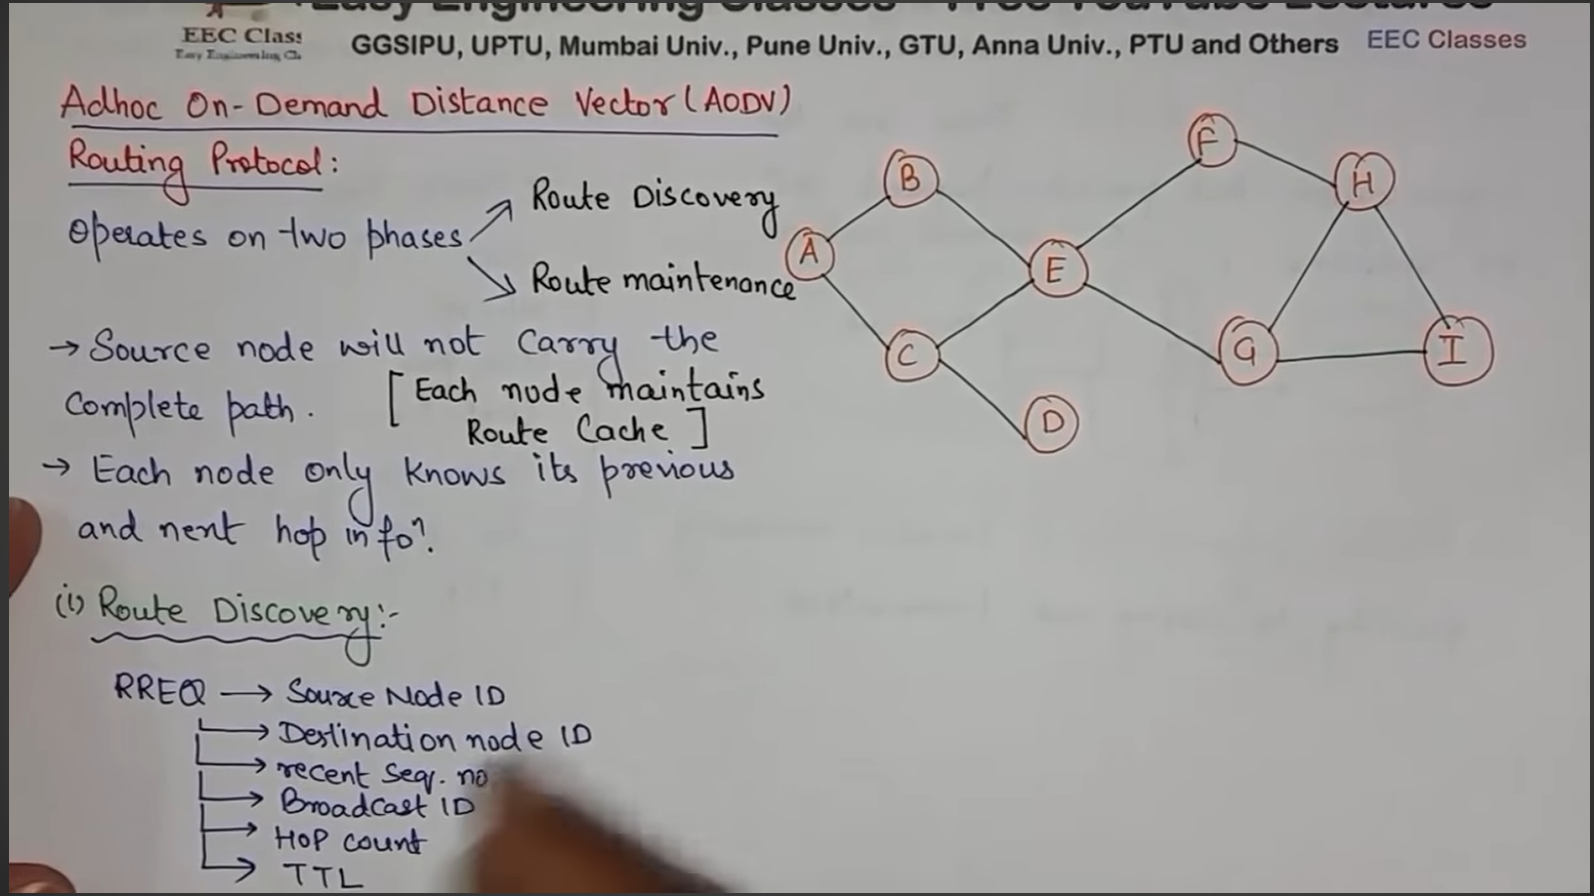 Easy Engineering Classes - Free YouTube Lectures
EEC Class
Easy Engineering Cla
GGSIPU, UPTU, Mumbai Univ., Pune Univ., GTU, Anna Univ., PTU and Others
EEC Classes
Adhoc On-Demand Distance Vector (AODV)
Routing Protocol:
Operates on two phases
Route Discovery
Route maintenance
→ Source node will not carry the
complete path.
[Each node maintains
Route Cache]
→ Each node only knows its previous
and nent hop infoⁿ.
(i) Route Discovery:-
RREQ → Source Node ID
→ Destination node ID
→ recent Seq. no
→ Broadcast ID
→ HOP count
→ TTL
A
B
C
D
E
F
G
H
I